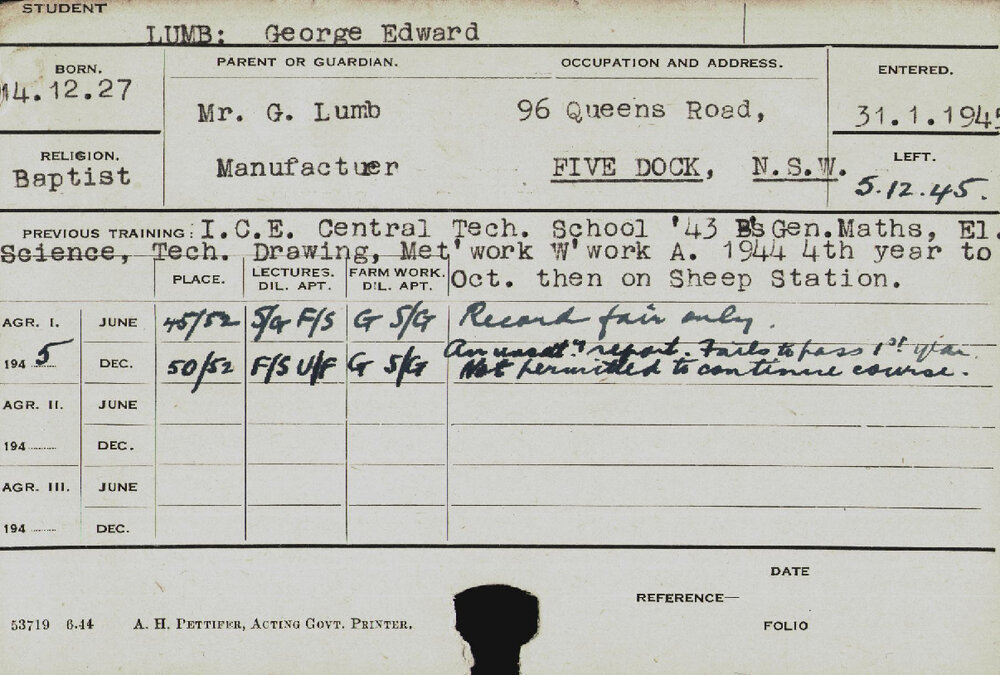 STUDENT
LUMB: George Edward
BORN. PARENT OR GUARDIAN. OCCUPATION AND ADDRESS. ENTERED.
14.12.27 Mr. G. Lumb 96 Queens Road, 31.1.1945
RELIGION. Manufactuer FIVE DOCK, N.S.W. LEFT.
Baptist 5.12.45.
PREVIOUS TRAINING: I.C.E. Central Tech. School '43 B's Gen.Maths, El.
Science, Tech. Drawing, Met'work W'work A. 1944 4th year to
PLACE. LECTURES. FARM WORK. Oct. then on Sheep Station.
DIL. APT. DIL. APT.
AGR. I. JUNE 45/52 S/G F/S G S/G Record fair only.
An unsat.y report. Fails to pass 1st year.
194 5 DEC. 50/52 F/S U/F G S/G Not permitted to continue course.
AGR. II. JUNE
194 ........ DEC.
AGR. III. JUNE
194 ........ DEC.
DATE
REFERENCE—
53719 6.44 A. H. PETTIFER, ACTING GOVT. PRINTER. FOLIO